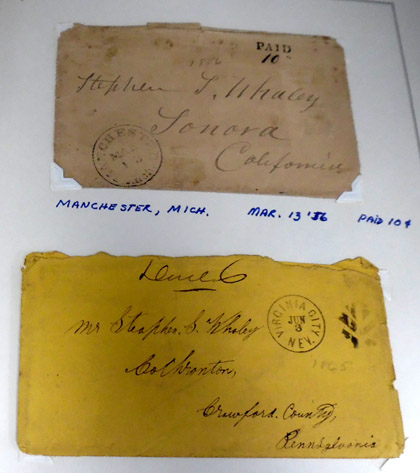 PAID
10
Stephen S. Whaley
Sonora
California
MANCHESTER
MICH.
MANCHESTER, MICH. MAR. 13 '56 PAID 10¢
Due 6
Mr Stephen S. Whaley
VIRGINIA CITY
JUN
3
NEV.
1865
Cochranton,
Crawford County,
Pennsylvania